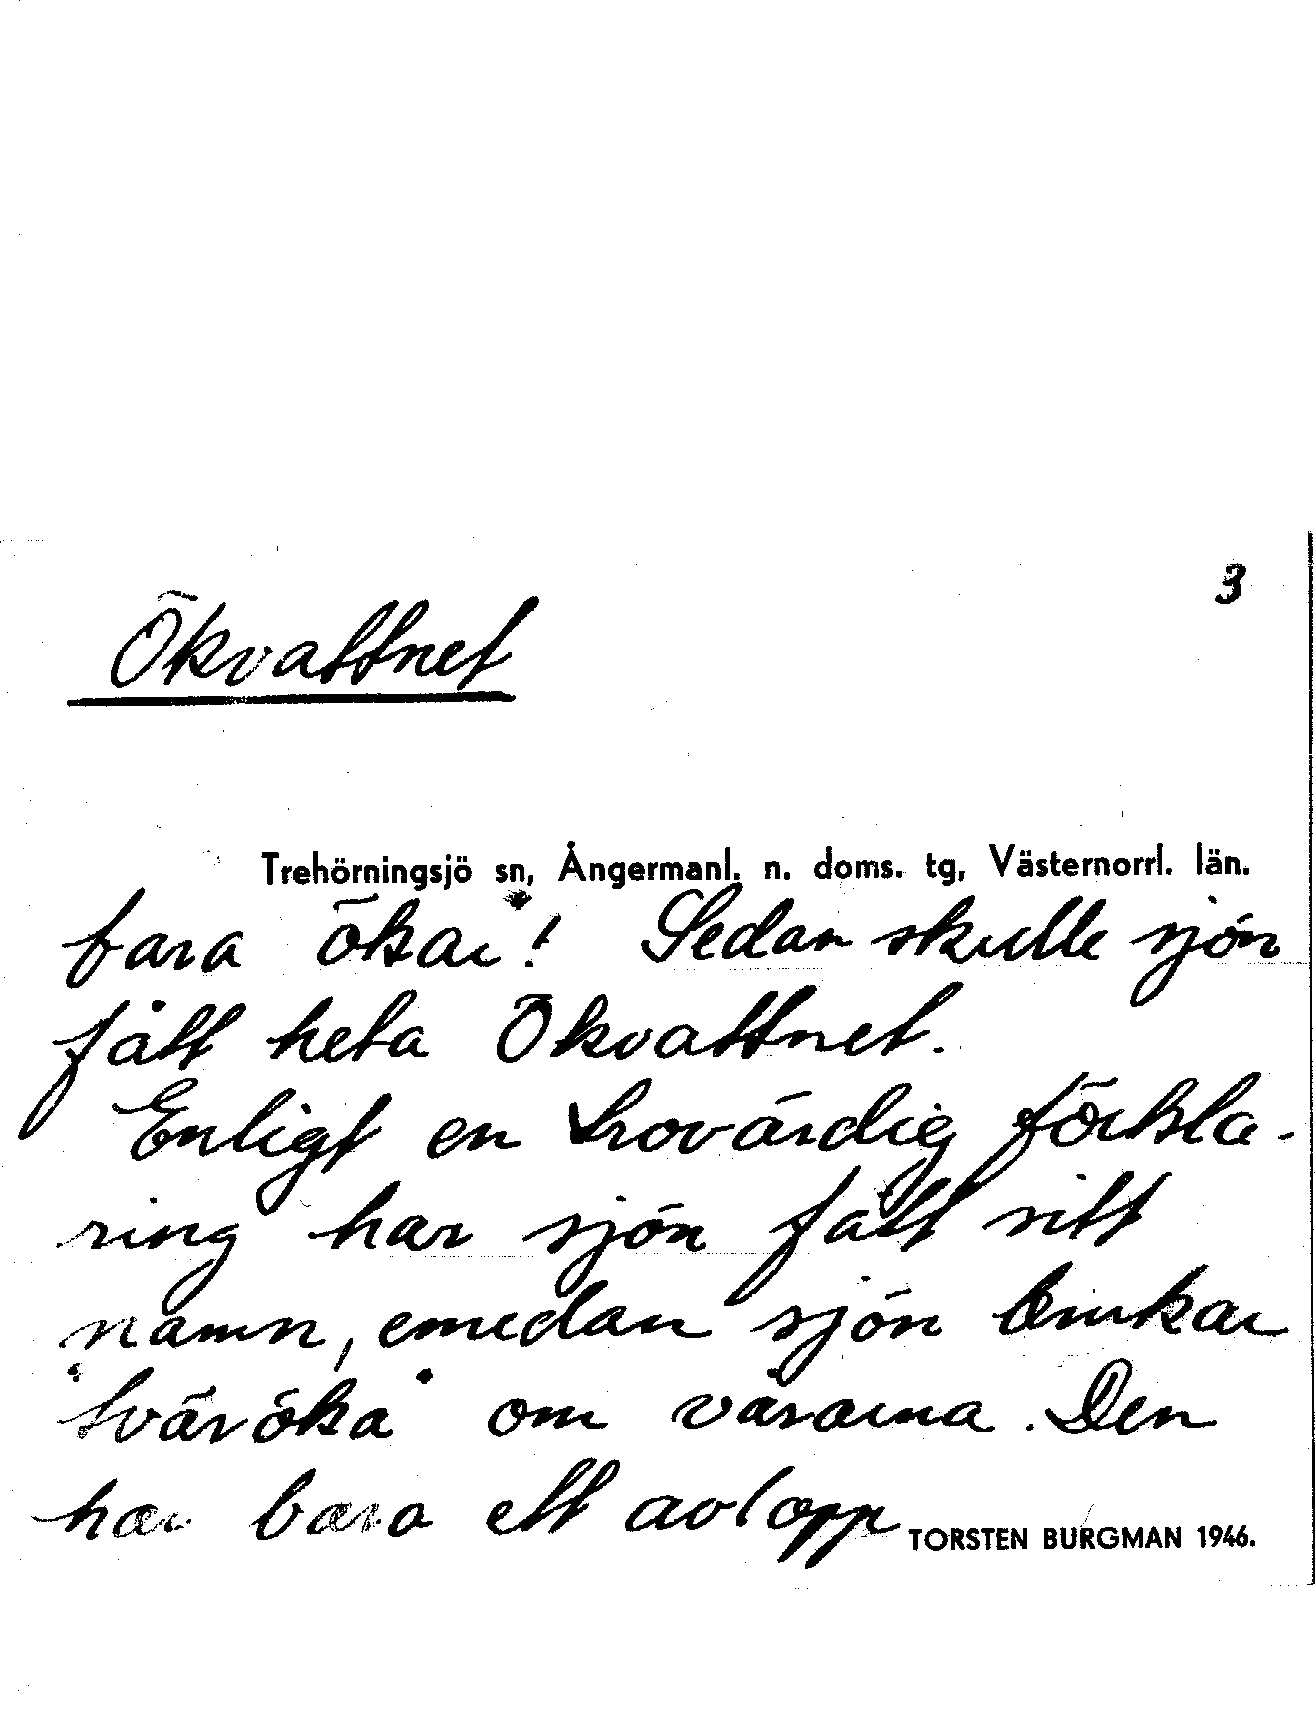 3
Ökvattnet
Trehörningsjö sn, Ångermanl. n. doms. tg, Västernorrl. län.
bara ökar"! Sedan skulle sjön
fått heta Ökvattnet.
Enligt en trovärdig förkla-
ring har sjön fått sitt
namn, emedan sjön brukar
"tväröka" om vårarna. Den
har bara ett avlopp
TORSTEN BURGMAN 1946.